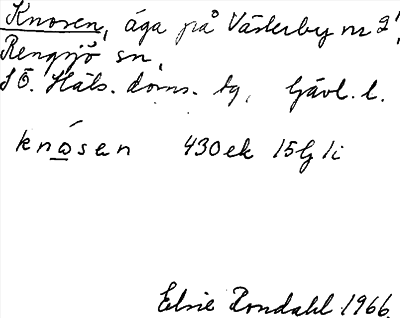 Knosen, äga på Västerby nr 2,
Rengsjö sn,
SÖ. Häls. doms. tg, Gävl. l.
knåsen 430ek 15Gj 1i
Elsie Rondahl 1966.